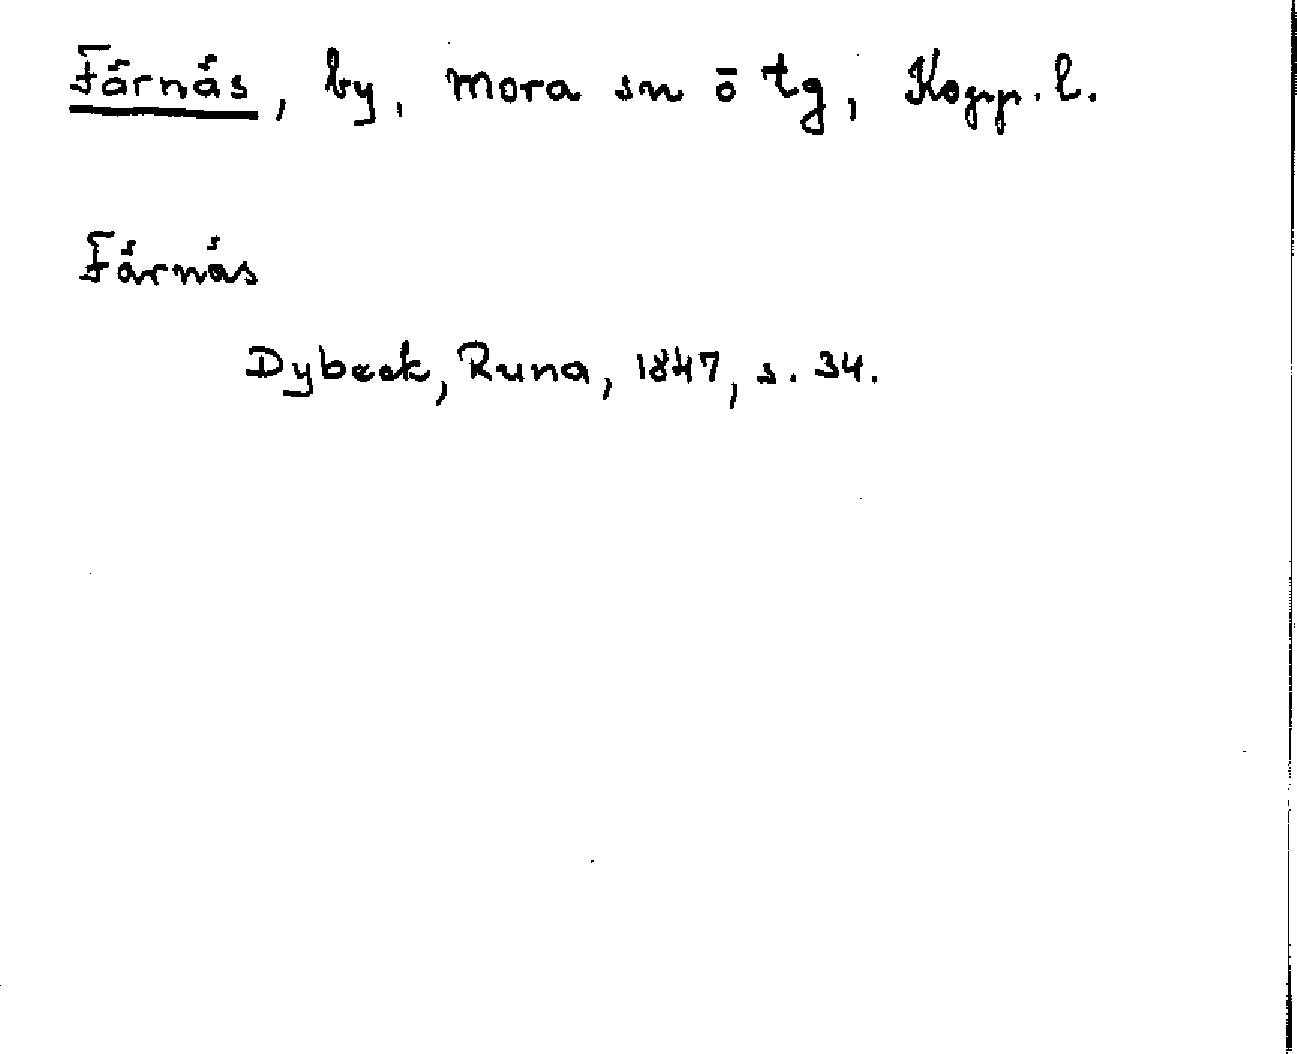 Färnäs, by, Mora sn ö tg, Kopp. l.
Färnäs
Dybeck, Runa, 1847, s. 34.